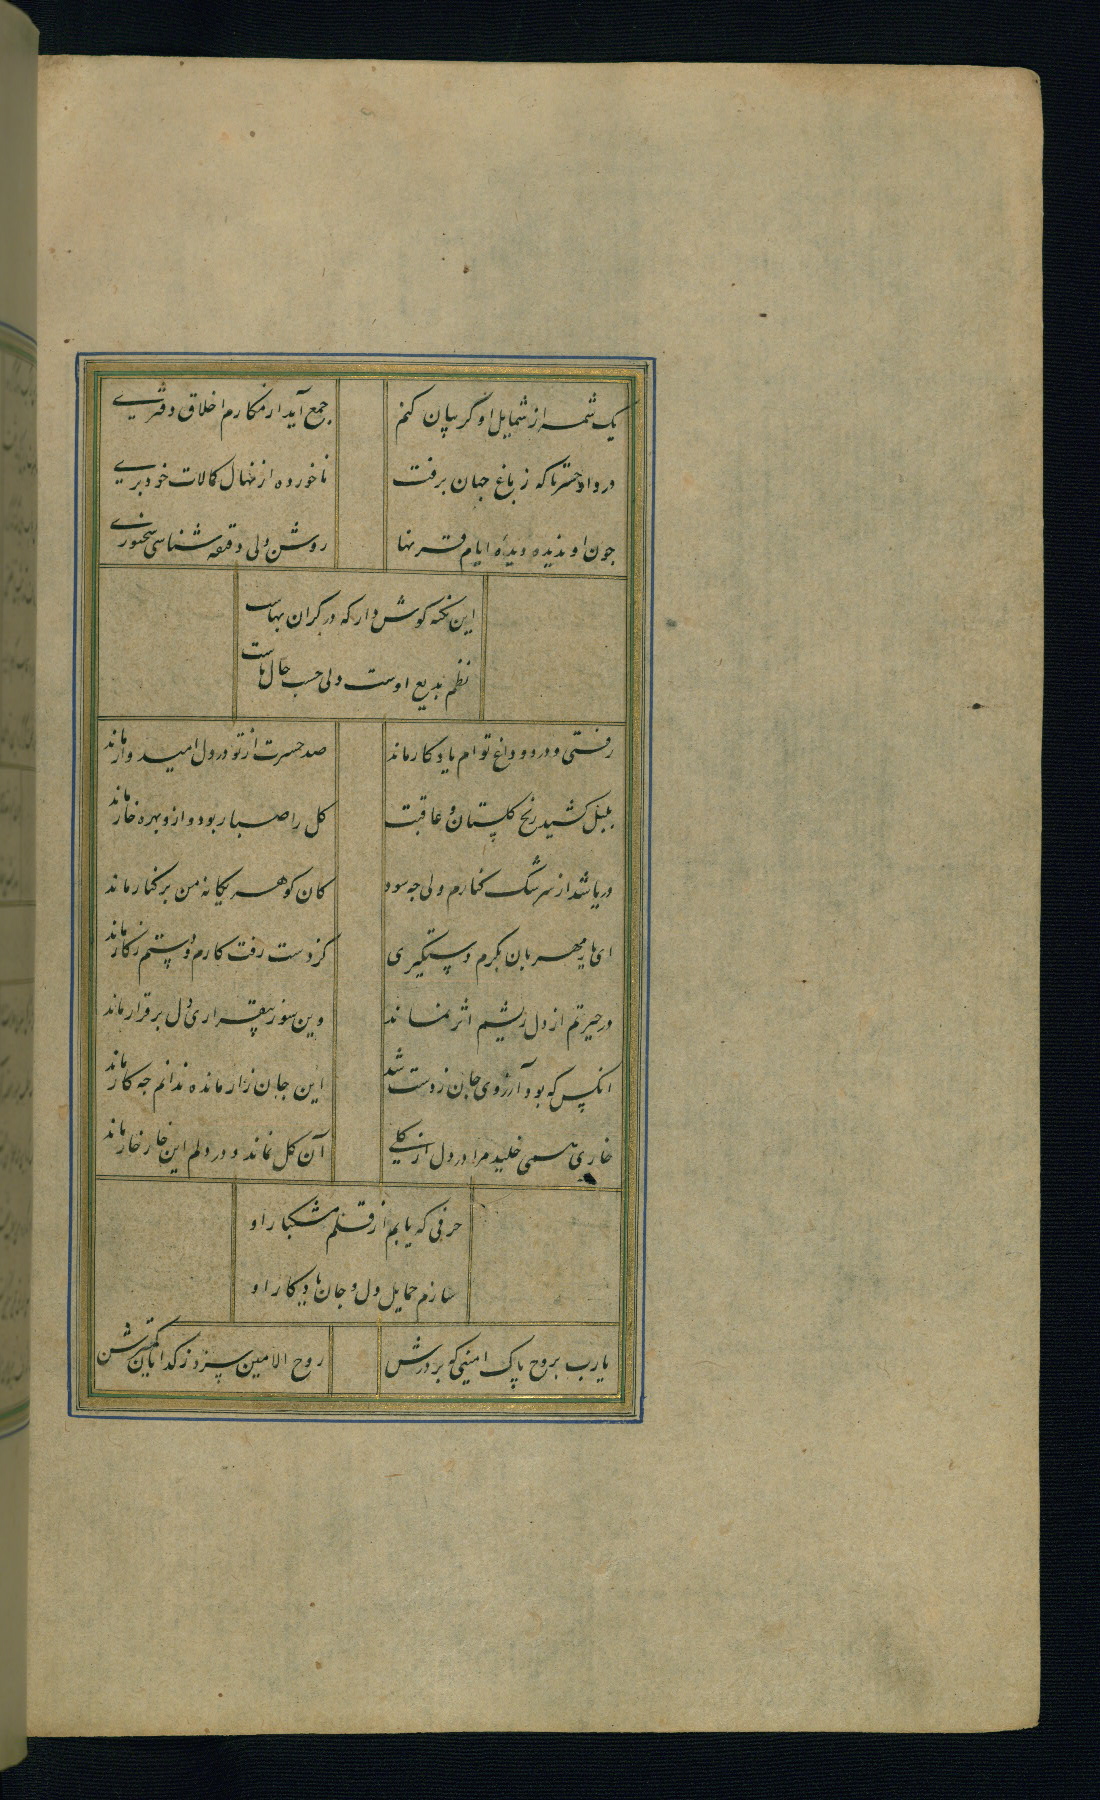 یک شمه از شمایل او گر بیان کنم جمع آید از مکارم اخلاق دفتری
درد او حسرتا که ز باغ جهان برفت ناخورده از نهال کالات خود بری
جون او ندیده دیدهٔ ایام قرنها روشن دلی دقیقه شناسی سخنوری
این نکته کوش دار که در کران بهاست
نظم بدیع اوست ولی حسب حال ماست
رفتی و درد و داغ توام یادکار ماند صد حسرت از تو در دل امیدوار ماند
بلبل کشید رنج کلستان و عاقبت کل را صبا ربود و ازو بهره خار ماند
دریا شد از سرشک کنارم ولی جه سود کان کوهر یکانه من بر کنار ماند
ای مایه مهربان بکرم دستکیری کز دست رفت کارم و دستم ز کار ماند
در حیرتم از دل ریشم اثر نماند وین سوز بیقراری دل برقرار ماند
انکس که بود آرزوی جان ز دست شد این جان زار مانده ندانم جه کار ماند
خاری همی خلید مرا در دل از کلی آن کل نماند و در دلم این خار خار ماند
حرفی که یابم از قلم مشکبار او
سازم حمایل دل و جان یادکار او
یارب بروح پاک امینی که بر درش روح الامین سزد ز کدایان کمترش